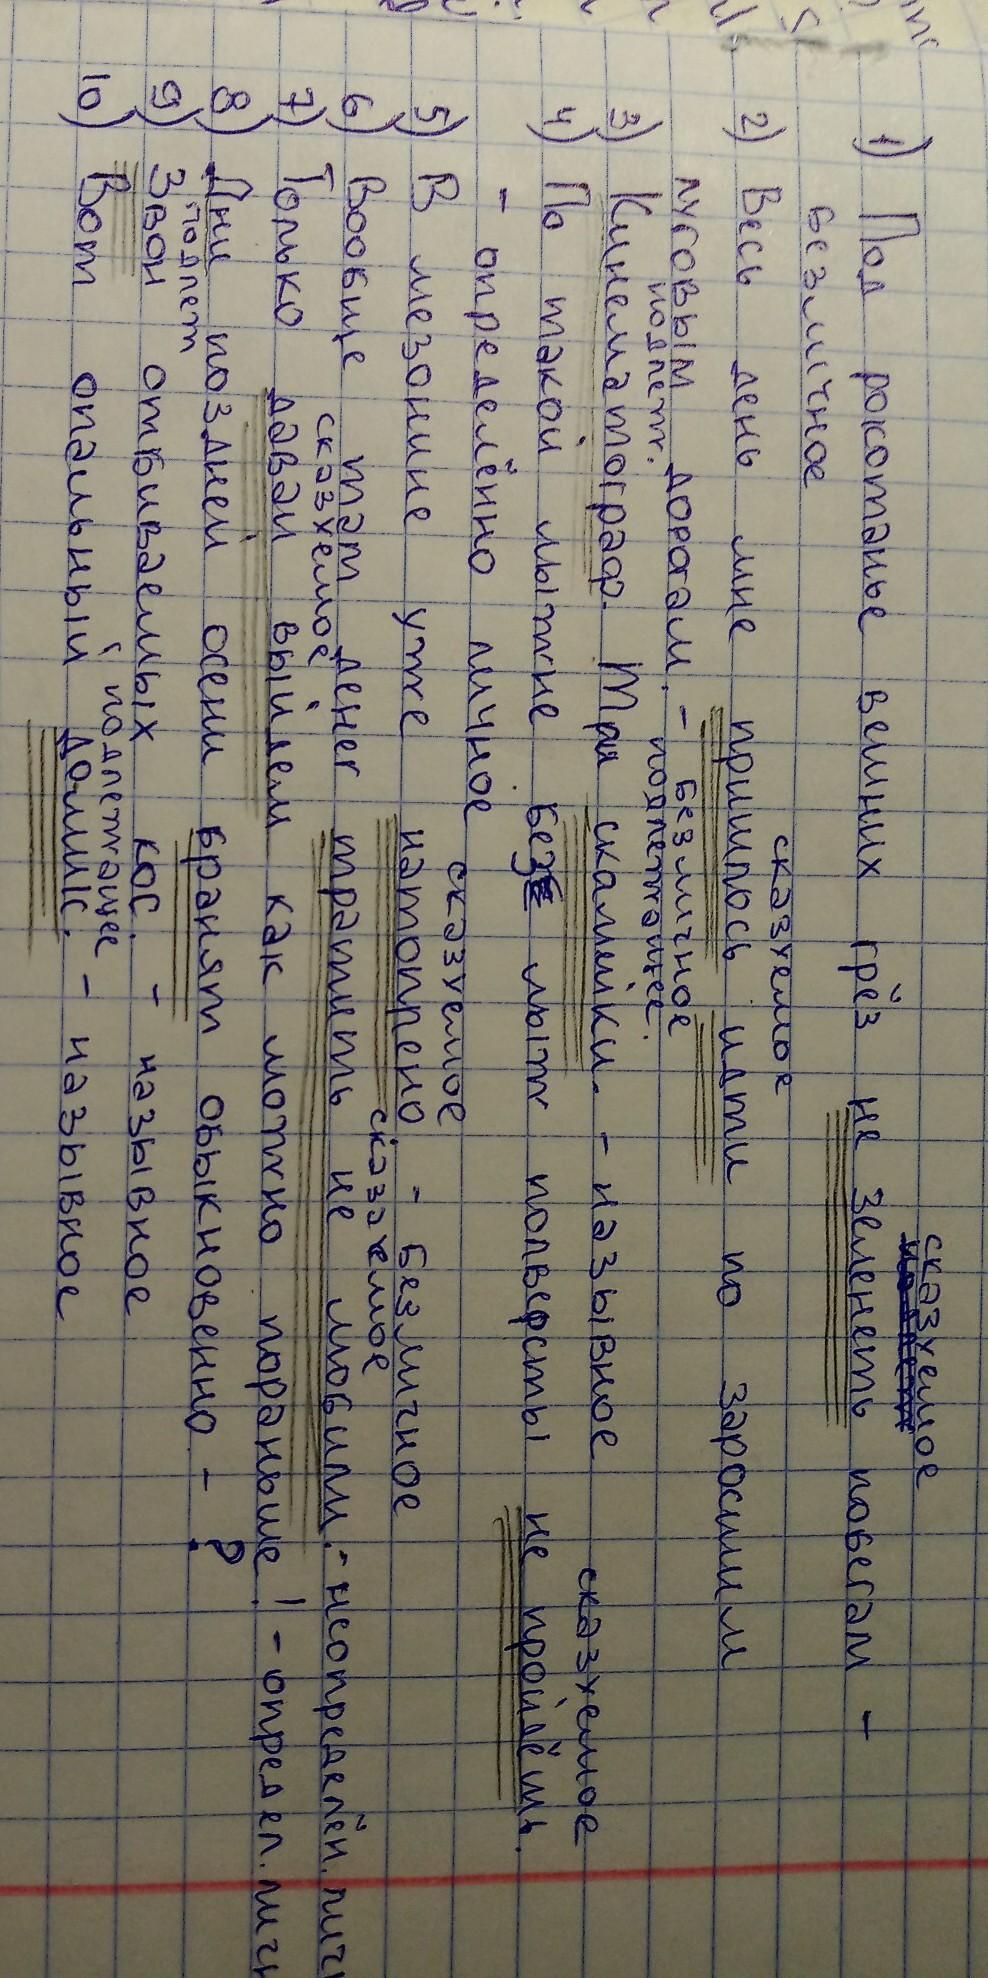 сказуемое
1) Под рокотанье вешних грёз не зеленеть побегам -
безличное
сказуемое
2) Весь день мне пришлось идти по заросшим
луговым дорогам. - безличное
подлеж. подлежащее.
3) Кинематограф. Три скамейки. - назывное
сказуемое
4) По такой лыжне без лыж полверсты не пройдёшь.
- определённо личное
сказуемое
5) В мезонине уже натоплено - безличное
сказуемое
6) Вообще там денег тратить не любили. - неопределён. личн
сказуемое
7) Только давай выйдем как можно пораньше! - определ. личн
8) Дни поздней осени бранят обыкновенно - ?
подлеж
9) Звон отбиваемых кос. - назывное
подлежащее
10) Вот опальный домик. - назывное